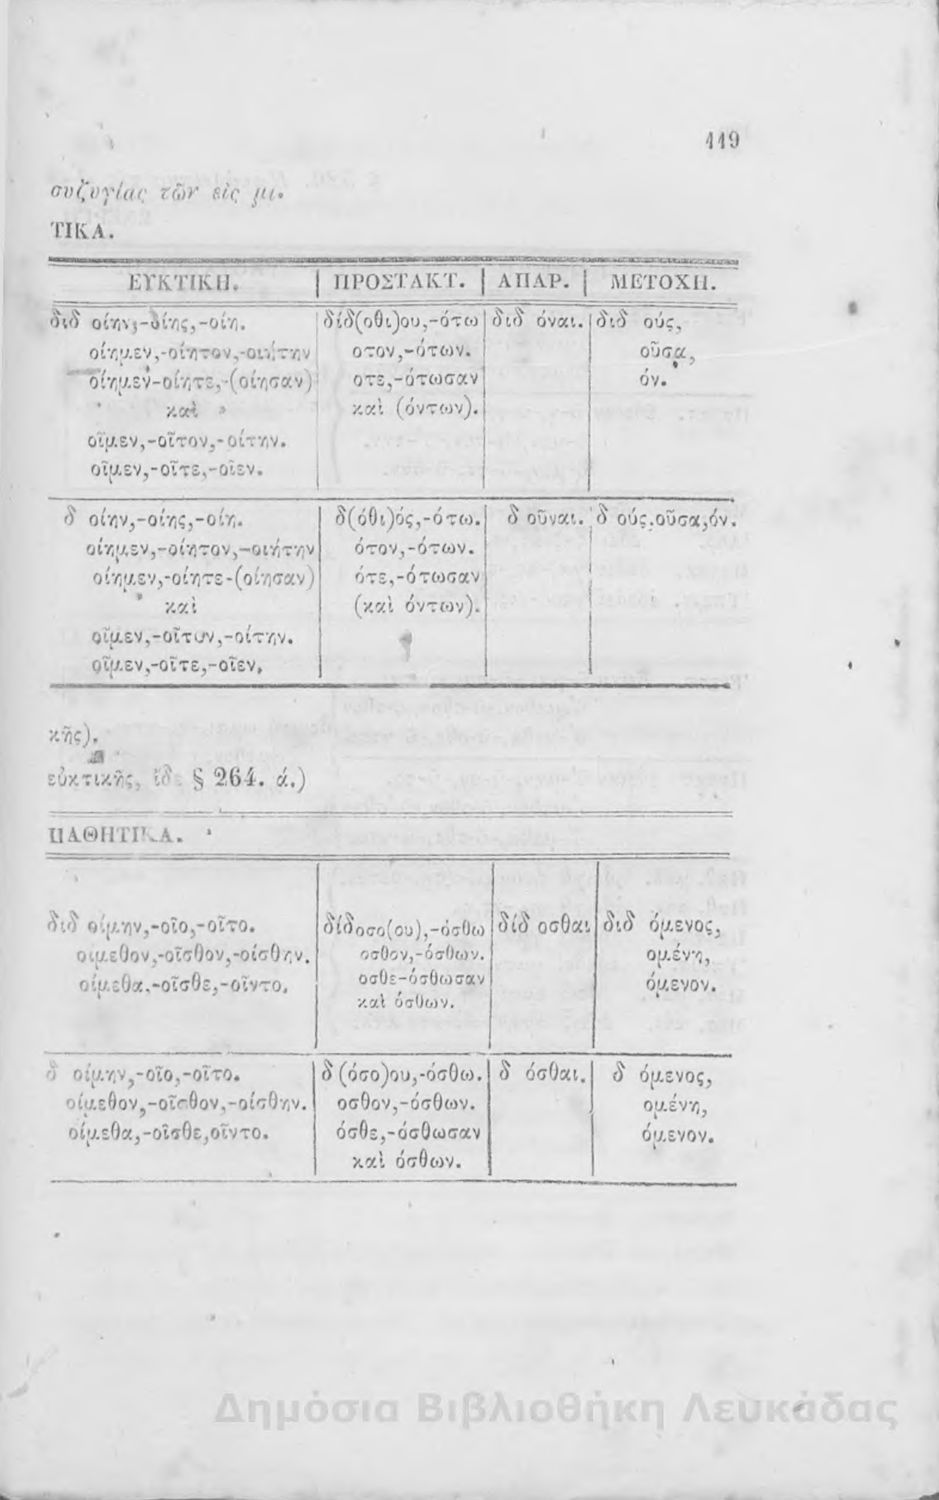 119
συζυγίας τῶν εἰς μι.
ΤΙΚΑ.
ΕΥΚΤΙΚΗ. | ΠΡΟΣΤΑΚΤ. | ΑΠΑΡ. | ΜΕΤΟΧΗ.
διδ οίην,-οίης,-οίη. δίδ(οθι)ου,-ότω διδ όναι. διδ ούς,
οίημεν,-οίητον,-οιήτην οτον,-ότων. οῦσα,
οίημεν-οίητε,-(οίησαν) οτε,-ότωσαν όν.
καὶ καὶ (όντων).
οῖμεν,-οῖτον,-οίτην.
οῖμεν,-οῖτε,-οῖεν.
δ οίην,-οίης,-οίη. δ(όθι)ός,-ότω. δ οῦναι. δ ούς,οῦσα,όν.
οίημεν,-οίητον,-οιήτην ότον,-ότων.
οίημεν,-οίητε-(οίησαν) ότε,-ότωσαν
καὶ (καὶ όντων).
οῖμεν,-οῖτον,-οίτην.
οῖμεν,-οῖτε,-οῖεν,
κῆς).
εὐκτικῆς, ἰδε § 264. ά.)
ΠΑΘΗΤΙΚΑ.
διδ οίμην,-οῖο,-οῖτο. δίδοσο(ου),-όσθω δίδ οσθαι διδ όμενος,
οιμεθον,-οῖσθον,-οίσθην. οσθον,-όσθων. ομένη,
οίμεθα,-οῖσθε,-οῖντο, οσθε-όσθωσαν όμενον.
καὶ όσθων.
δ οίμην,-οῖο,-οῖτο. δ (όσο)ου,-όσθω. δ όσθαι. δ όμενος,
οίμεθον,-οῖσθον,-οίσθην. οσθον,-όσθων. ομένη,
οίμεθα,-οῖσθε,οῖντο. όσθε,-όσθωσαν όμενον.
καὶ όσθων.
Δημόσια Βιβλιοθήκη Λευκάδας